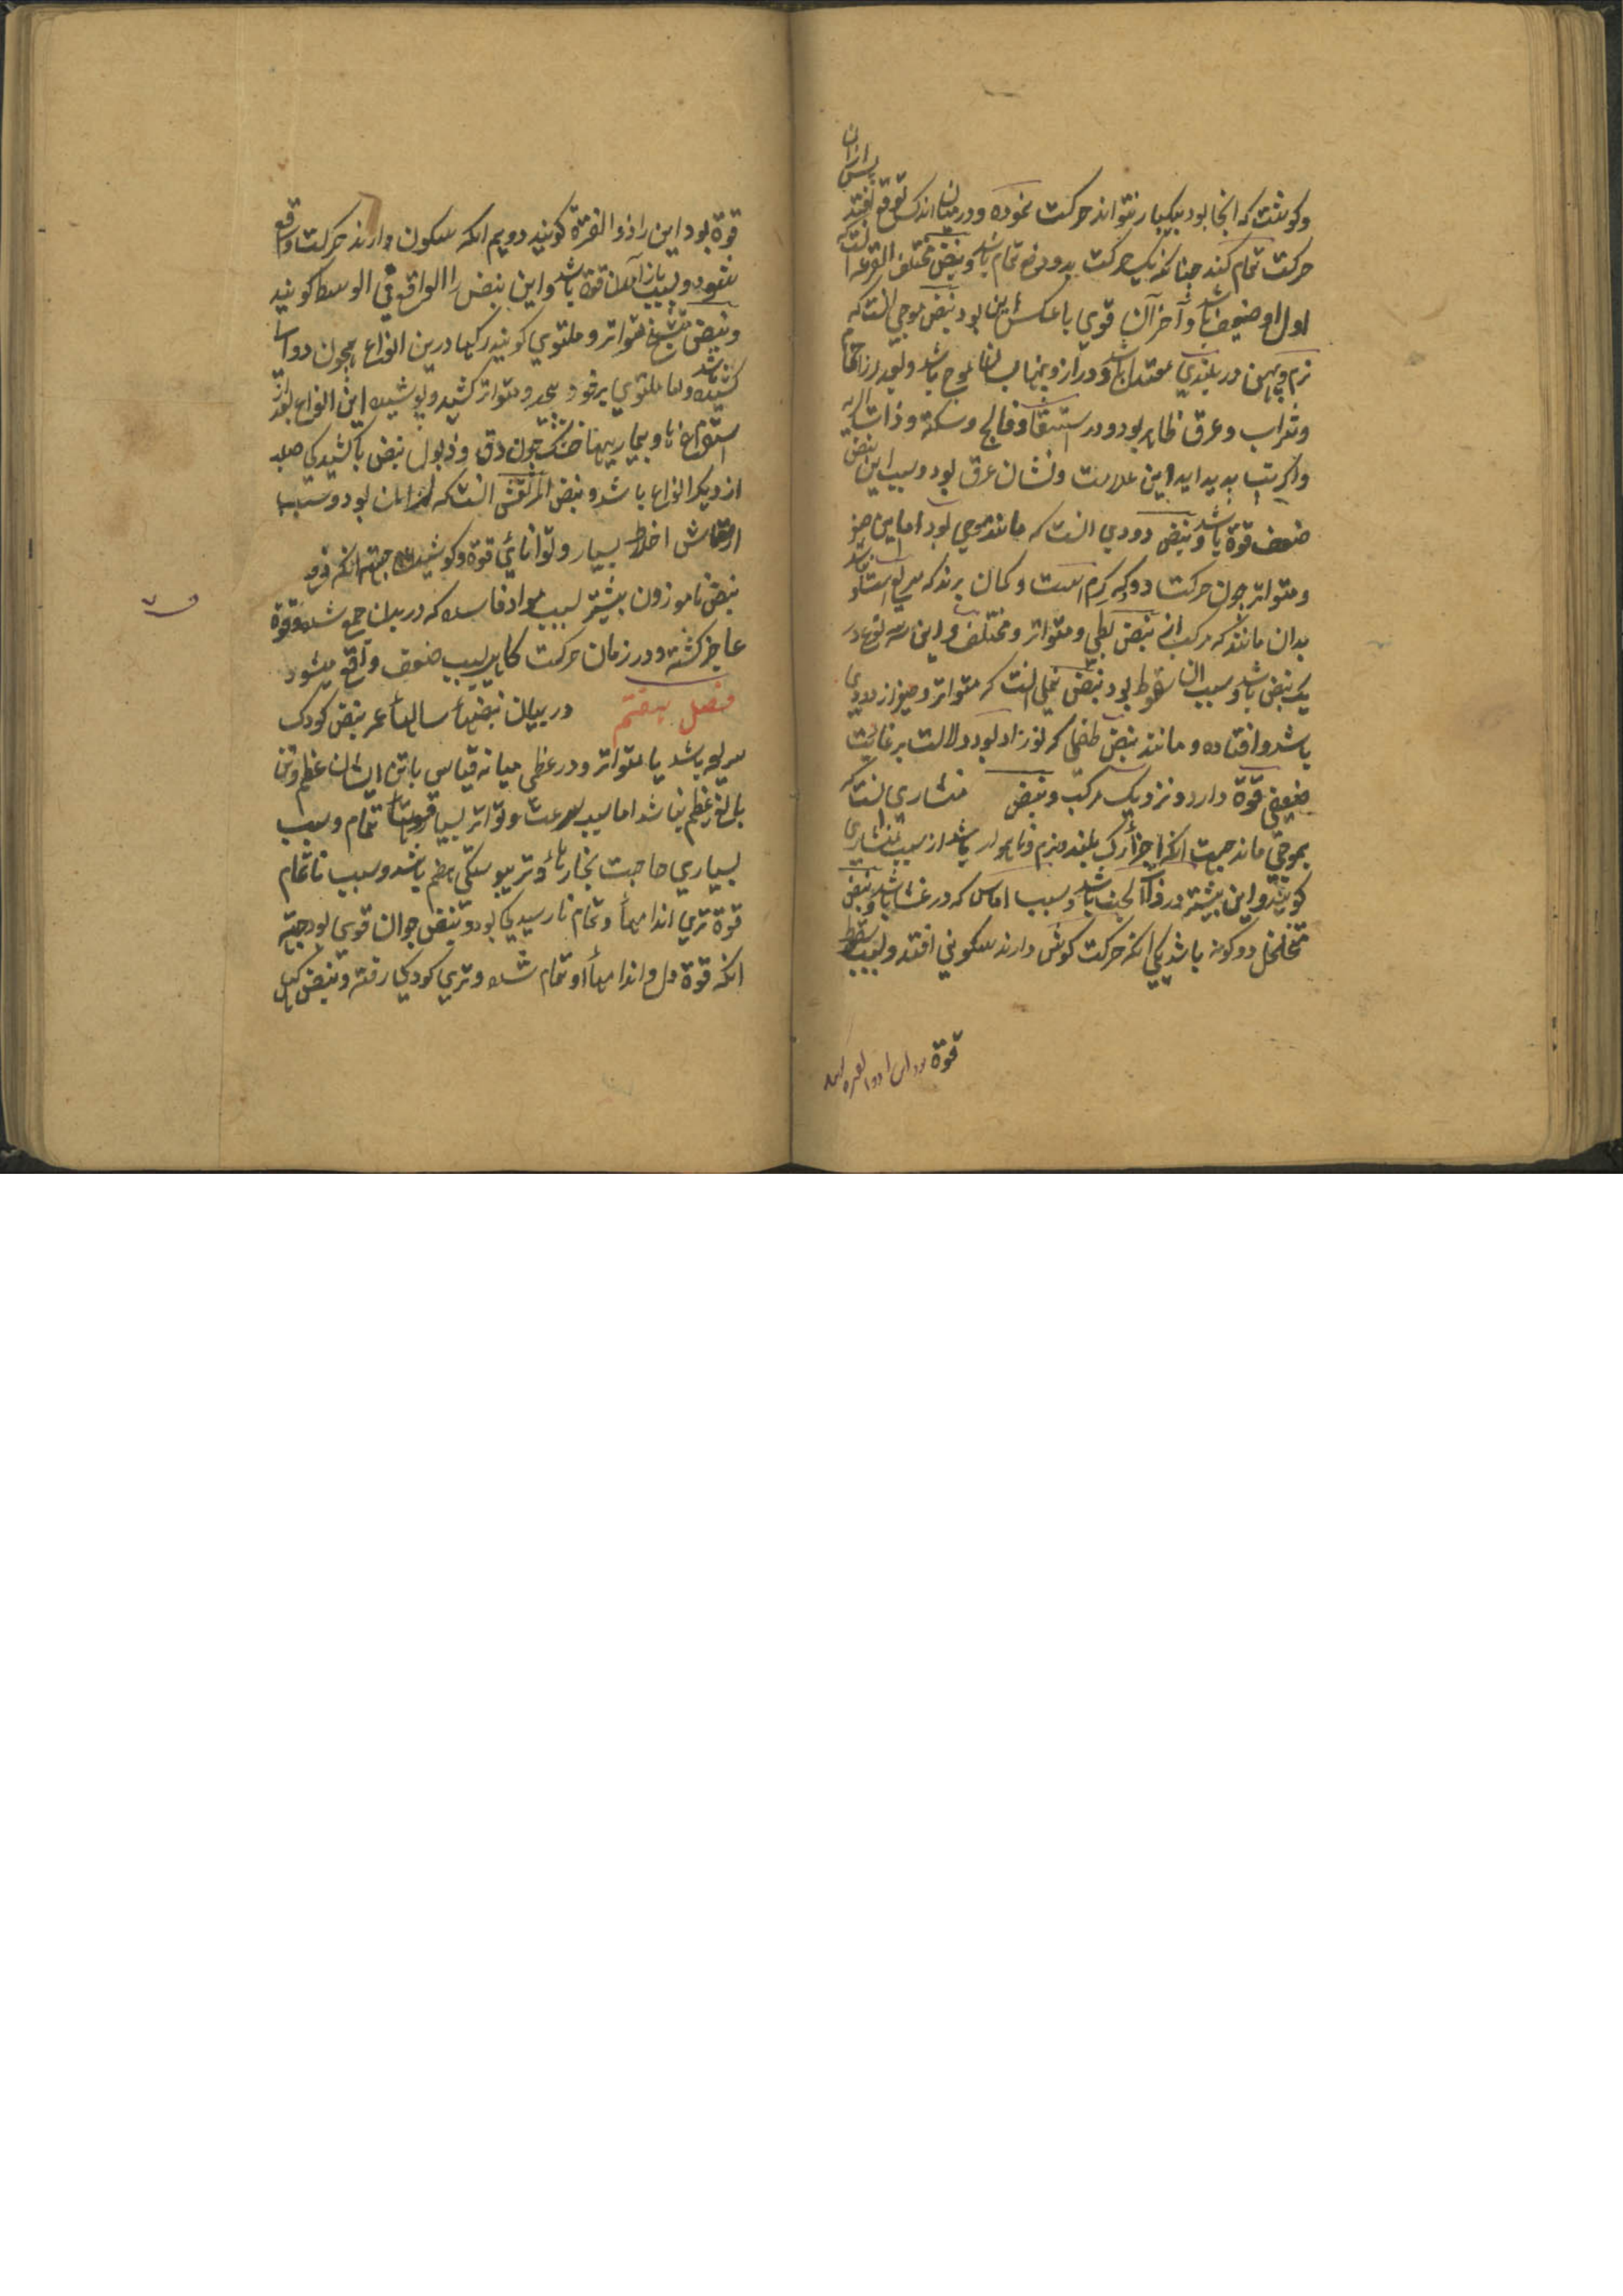 پس ازان
وکوشت که انجا بود بیکبار نتواند حرکت نموده ودرمیان اندک توقع افتد
حرکت تمام کند چنانکه یک حرکت بدو دفعه تمام باشد ونبض مختلف القرعه انست که
اول او ضعیف باشد وآخر آن قوی یا عکس این بود نبض موجی انست که
نرم وپهن در بلندی معتدل باشد ودراز وپهنا بسان موج باشد وبعد از حمام
وشراب وعرق ظاهر بود ودر استسقا وفالج وسکته وذات الریه
واکر تب پدید اید این علامت ونشان عرق بود وسبب این نبض
ضعف قوة باشد ونبض دودی انست که مانند موجی بود اما این صغیر
ومتواتر چون حرکت دود که کرم است وکمان برند که سریع است باشد
بدان مانند که مرکب از نبض بطی ومتواتر ومختلف واین سه نوع در
یک نبض باشد وسبب ان سقوط بود نبض نملی انست که متواتر وصغیر از دودی
باشد وافتاده ومانند نبض طفلی که نوزاد بود دلالت بر غایت
ضعیفی قوة دارد ونزدیک مرکب ونبض منشاری انست که
بموجی ماند جهت انکه اجزأ رک بلند ونرم وناهموار باشد از سبب منشاری
کویند واین بیشتر در ذات الجنب باشد وسبب اماس که در غشا باشد ونبض
متخلخل دو کونه باشد یکی انکه حرکت کوش دارند سکونی افتد وبسبب سقوط
قوة
قوة بود این را ذو الفترة کویند دویم انکه سکون دارند حرکت واقع
شود وبسبب باز آمدن قوة باشد واین نبض را الواقع فی الوسط کویند
ونبض متشنج متواتر وملتوی کویند رکها درین انواع همچون دوا
کشیده باشد واما ملتوی بر خود پیچد ومتواتر کشید وپوشیده این انواع بعد از
استفراغ ها وبیماریها خشک چون دق وذبول نبض با کشیدکی صلب
از دیکر انواع باشد ونبض المرتعش انست که لرزان بود وسبب
ارتعاش اخلاط بسیار وتوانایی قوة وکوشیدن جهة انکه
نبض ناموزون بیشتر بسبب مواد فاسده که در بدن جمع شده وقوة
عاجز کشته ودر زمان حرکت کاهد بسبب ضعف واقع میشود
فصل هفتم در بیان نبضهأ سالهأ عمر نبض کودک
سریع باشد یا متواتر ودر عظمی میانه قیاس با تن ایشان عظیم وتن
بالغ عظیم نباشد اما سبب سرعت وتواتر بسیار قوت تمام وسبب
بسیاری حاجت بخارها وتر بیوستکی هضم باشد وسبب ناتمام
قوة تری اندامهأ وتمام نارسیدکی بود ونبض جوان قوی بود جهة
انکه قوة دل واندامهأ او تمام شده وتری کودکی رفته ونبض کهل